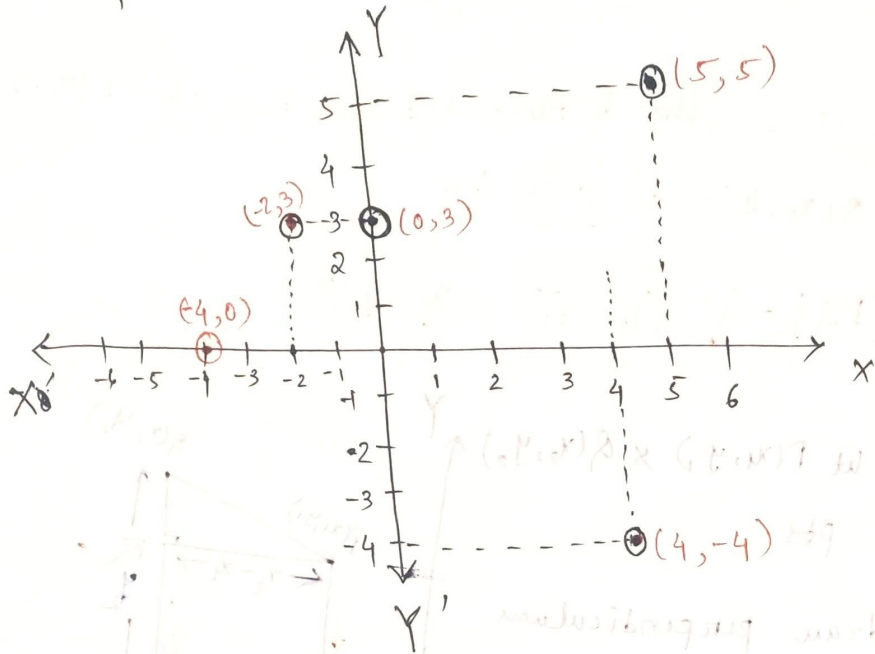 Y
5
(5,5)
4
(-2,3)
3
(0,3)
2
(-4,0)
1
-6 -5 -4 -3 -2 -1 1 2 3 4 5 6
X'
X
-1
-2
-3
-4
(4,-4)
Y'